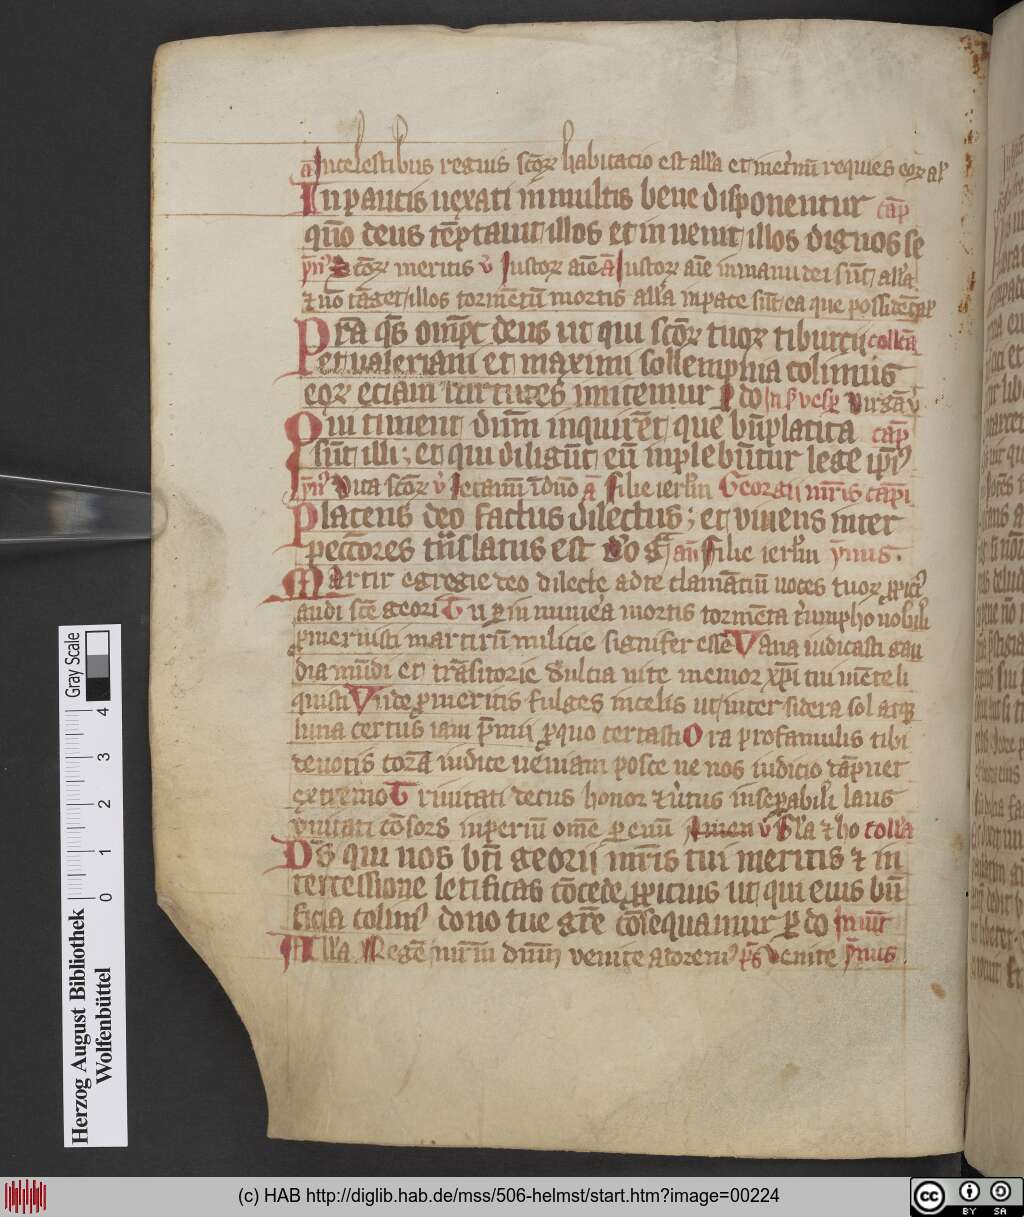 a Incelestibus regnis scōꝝ habitacio est alla et ineīnū requies eoꝝ al
In paucis uexati in multis bene disponentur cap̄
qm̄o deus tēptauit illos et inuenit illos dignos se
meritis v̄ Iustoꝝ aīe ā Iustoꝝ aīe in manu dei sūt alla
⁊ nō tāget illos tormētū mortis alla in pace sūt
P̄ra q̄s omp̄c deus ut qui scōꝝ tuoꝝ tiburcii collcā
et ualeriani et maximi sollempnia colimus
eoꝝ eciam uirtutes imitemur ꝑ do
Qui timent dūm inquirēt que bn̄placita cap̄
sūt illi; et qui diligūt eū inplebūtur lege ipī
Vita scōꝝ v̄ Letamī ī dūo ā Filie ierl̄m Georgii mr̄is capi
Placens deo factus dilectus; et viuens inter
peccōres tn̄slatus est an̄ Filie ierl̄m ymnus.
Martir egregie deo dilecte ad te clamāciū uoces tuoꝝ
audi scē geori Tu ꝑ inmunera mortis tormēta tͥumpho nobili
ꝓmeruisti martirū milicie signifer esse Vana iudicasti gau
dia mūdi et trāsitorie dulcia uite memor xpī tui mēte li
quisti Unde ꝓ meritis fulges in celis ut inter sidera sol atqꝫ
luna certus iam p̄mii ꝓ quo certasti Ora pro famulis tibi
deuotis corā iudice ueniam posce ne nos iudicio dāpnet
extremo Trinitati decus honor ⁊ uͥtus insepabilī laus
vnitati cōsors inperiū om̄e ꝑ euū Amen v̄ Gla ⁊ ho colla
Ds̄ qui nos bt̄i georii mr̄is tui meritis ⁊ in
tercessione letificas cōcede ꝓpicius ut qui eius bn̄
ficia colimꝰ dono tue gr̄e cōsequamur ꝑ do Inuit
Alla Regē mr̄m dnm̄ venite adoremꝰ p̄s Venite ymnus.
Gray Scale
4 3 2 1 0
Herzog August Bibliothek
Wolfenbüttel
(c) HAB http://diglib.hab.de/mss/506-helmst/start.htm?image=00224
cc BY SA